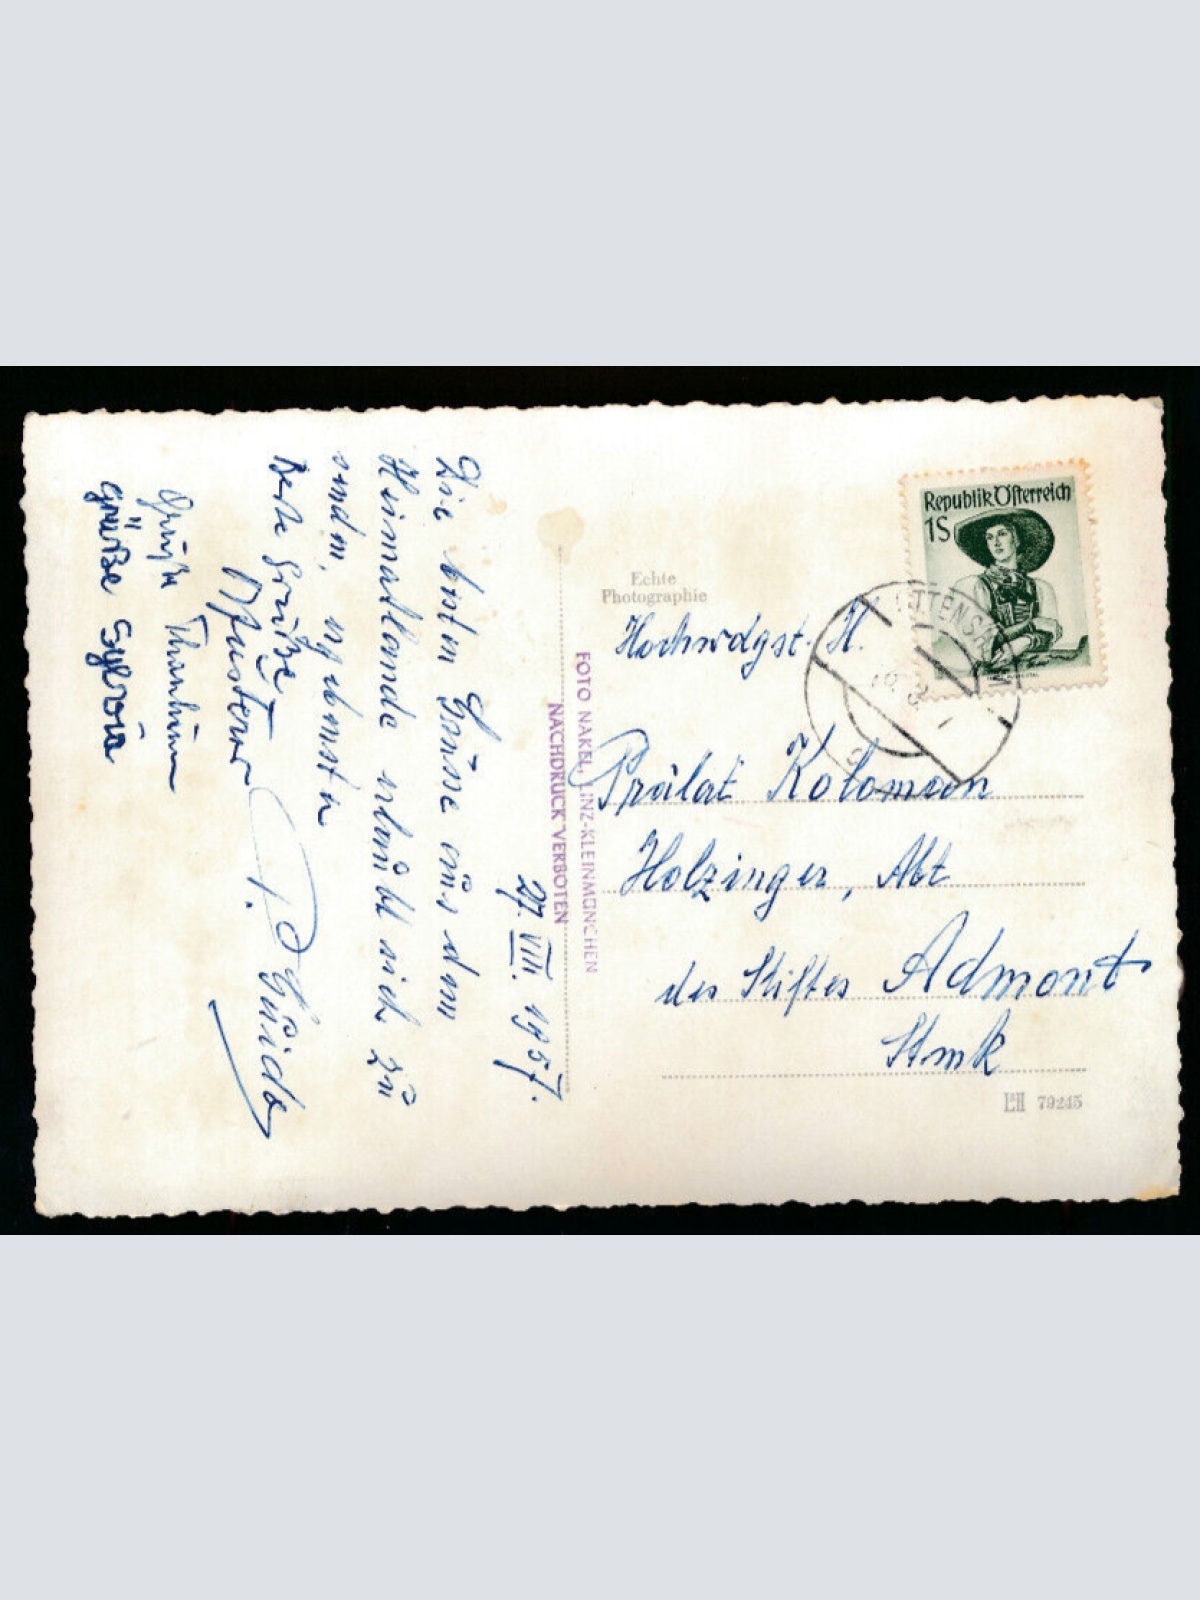 Republik Österreich
1S
Echte
Photographie
Hochwdgst. H.
Prälat Koloman
Holzinger, Abt
des Stiftes Admont
Stmk
79245
FOTO NAKEL, LINZ-KLEINMÜNCHEN
NACHDRUCK VERBOTEN
27. VIII. 1957.
Die besten Grüsse aus dem
Heimatlande erlaubt sich zu
senden, ergebenster
P. Guido
Beste Grüße
Grüße
Grüße Sylvia